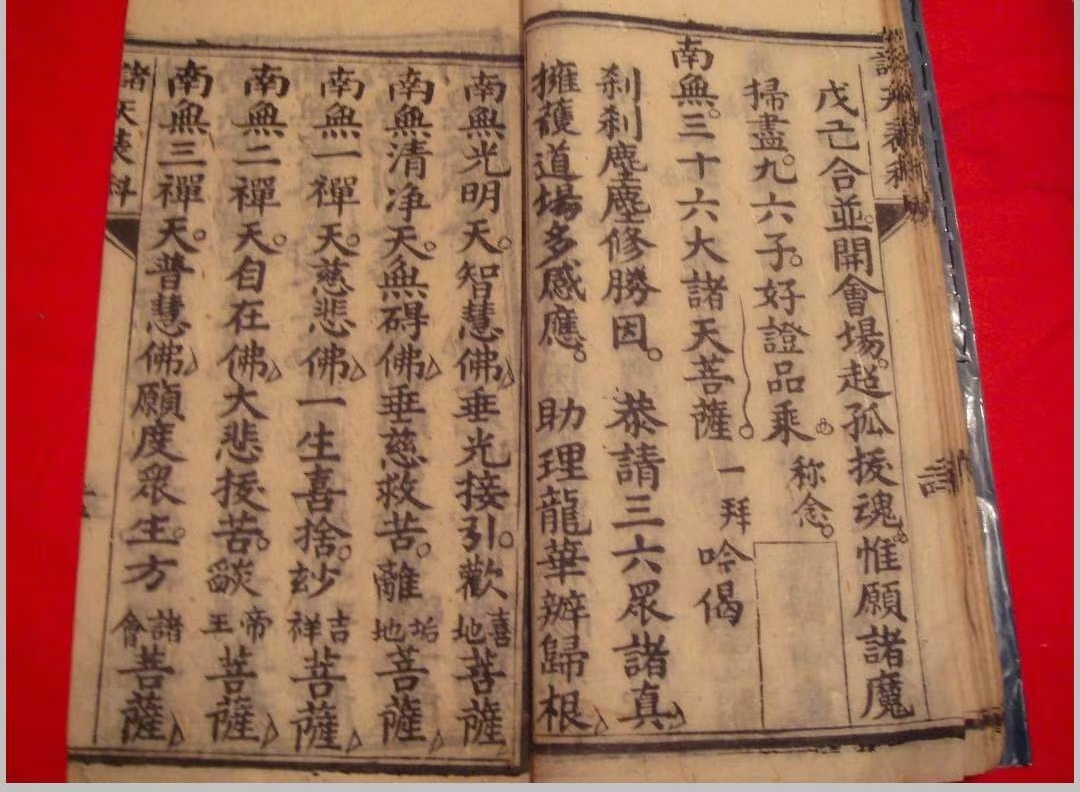 戊己合並。開會場。超孤拔魂。惟願諸魔
掃盡。九六子。好證品乘。称念。
南無。三十六大諸天菩薩。一拜 吟偈
刹刹塵塵修勝因。恭請三六眾諸真
擁護道場多感應。助理龍華辦歸根
南無光明天。智慧佛垂光接引。歡喜地菩薩
南無清净天。無碍佛垂慈救苦。離垢地菩薩
南無一禪天。慈悲佛一生喜捨。玅吉祥菩薩
南無二禪天。自在佛大悲拔苦。燄帝王菩薩
南無三禪天。普慧佛願度眾生。方諸會菩薩
諸天表科